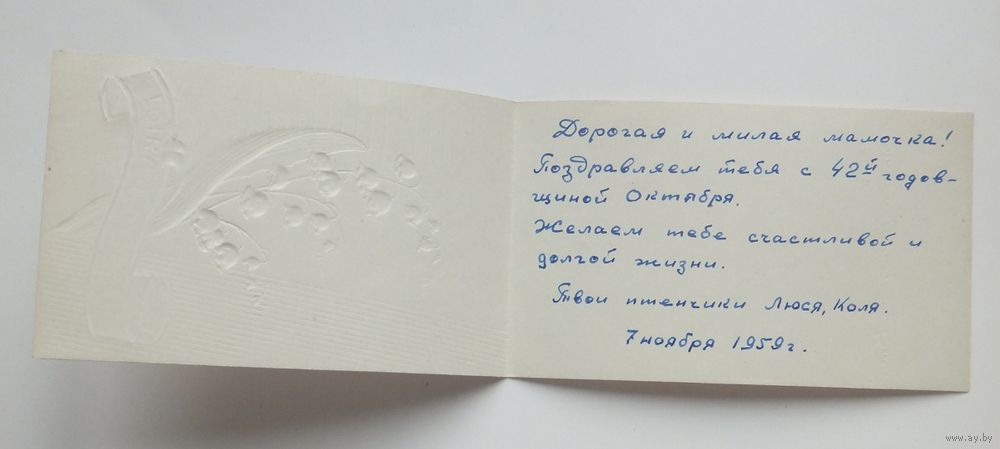 Дорогая и милая мамочка!
Поздравляем тебя с 42й годов-
щиной Октября.
Желаем тебе счастливой и
долгой жизни.
Твои птенчики Люся, Коля.
7 ноября 1959 г.
www.ay.by